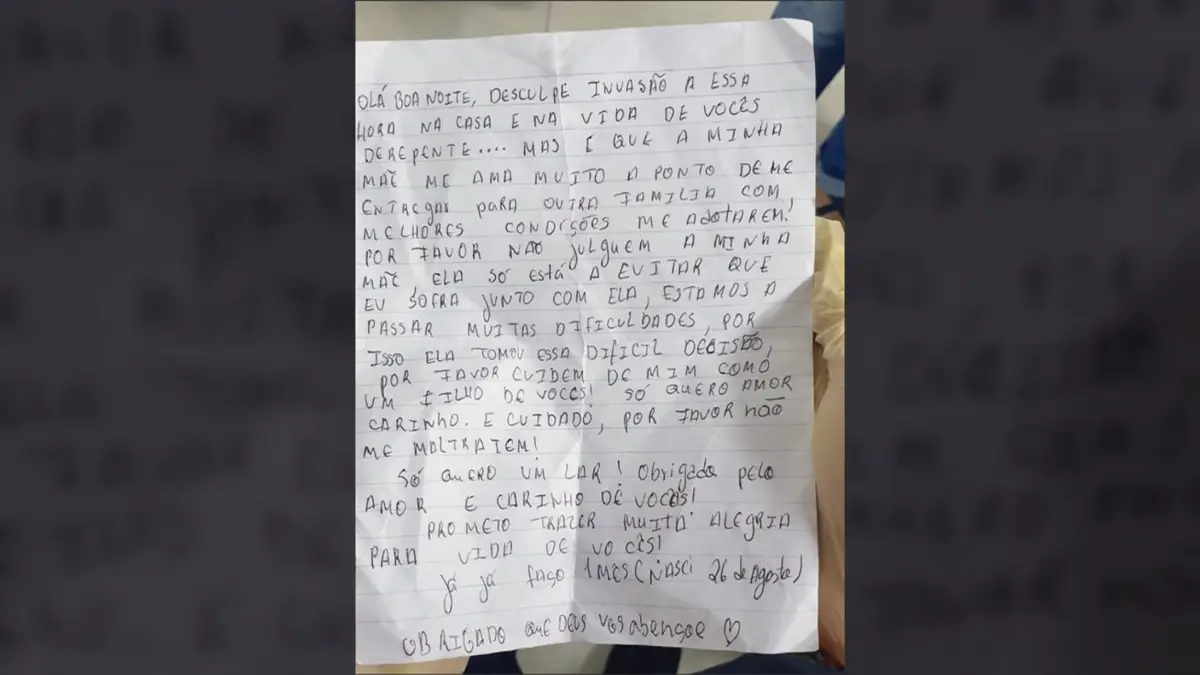 OLÁ BOA NOITE, DESCULPE INVASÃO A ESSA
HORA NA CASA E NA VIDA DE VOCÊS
DEREPENTE.... MAS É QUE A MINHA
MÃE ME AMA MUITO A PONTO DE ME
ENTREgAR pARA OUTRA FAMILIA COM
MELHORES CONDIÇÕES ME ADOTAREM!
POR FAVOR NÃO julguEM A MINHA
MÃE, ELA SÓ está A EVITAR QUE
EU SOFRA jUNTO COM ELA, ESTAMOS A
PASSAR MUITAS DIFICULDADES, POR
ISSO ELA TOMOU ESSA DIFICIL DECISÃO,
POR FAVOR CUIDEM DE MIM COMO
UM FILHO DE VOCES! SÓ QUERO AMOR
CARINHO. E CUIDADO, POR FAVOR NÃO
ME MALTRATEM!
SÓ QUERO UM LAR! Obrigada pelo
AMOR E CARINHO DE VOCÊS!
PROMETO TRAZER MUITA ALEGRIA
PARA VIDA DE VOCÊS!
Já já faço 1 MÊS (NASCI 26 de Agosto)
OBRIGADO QUE DEUS VOS abençoe ♡